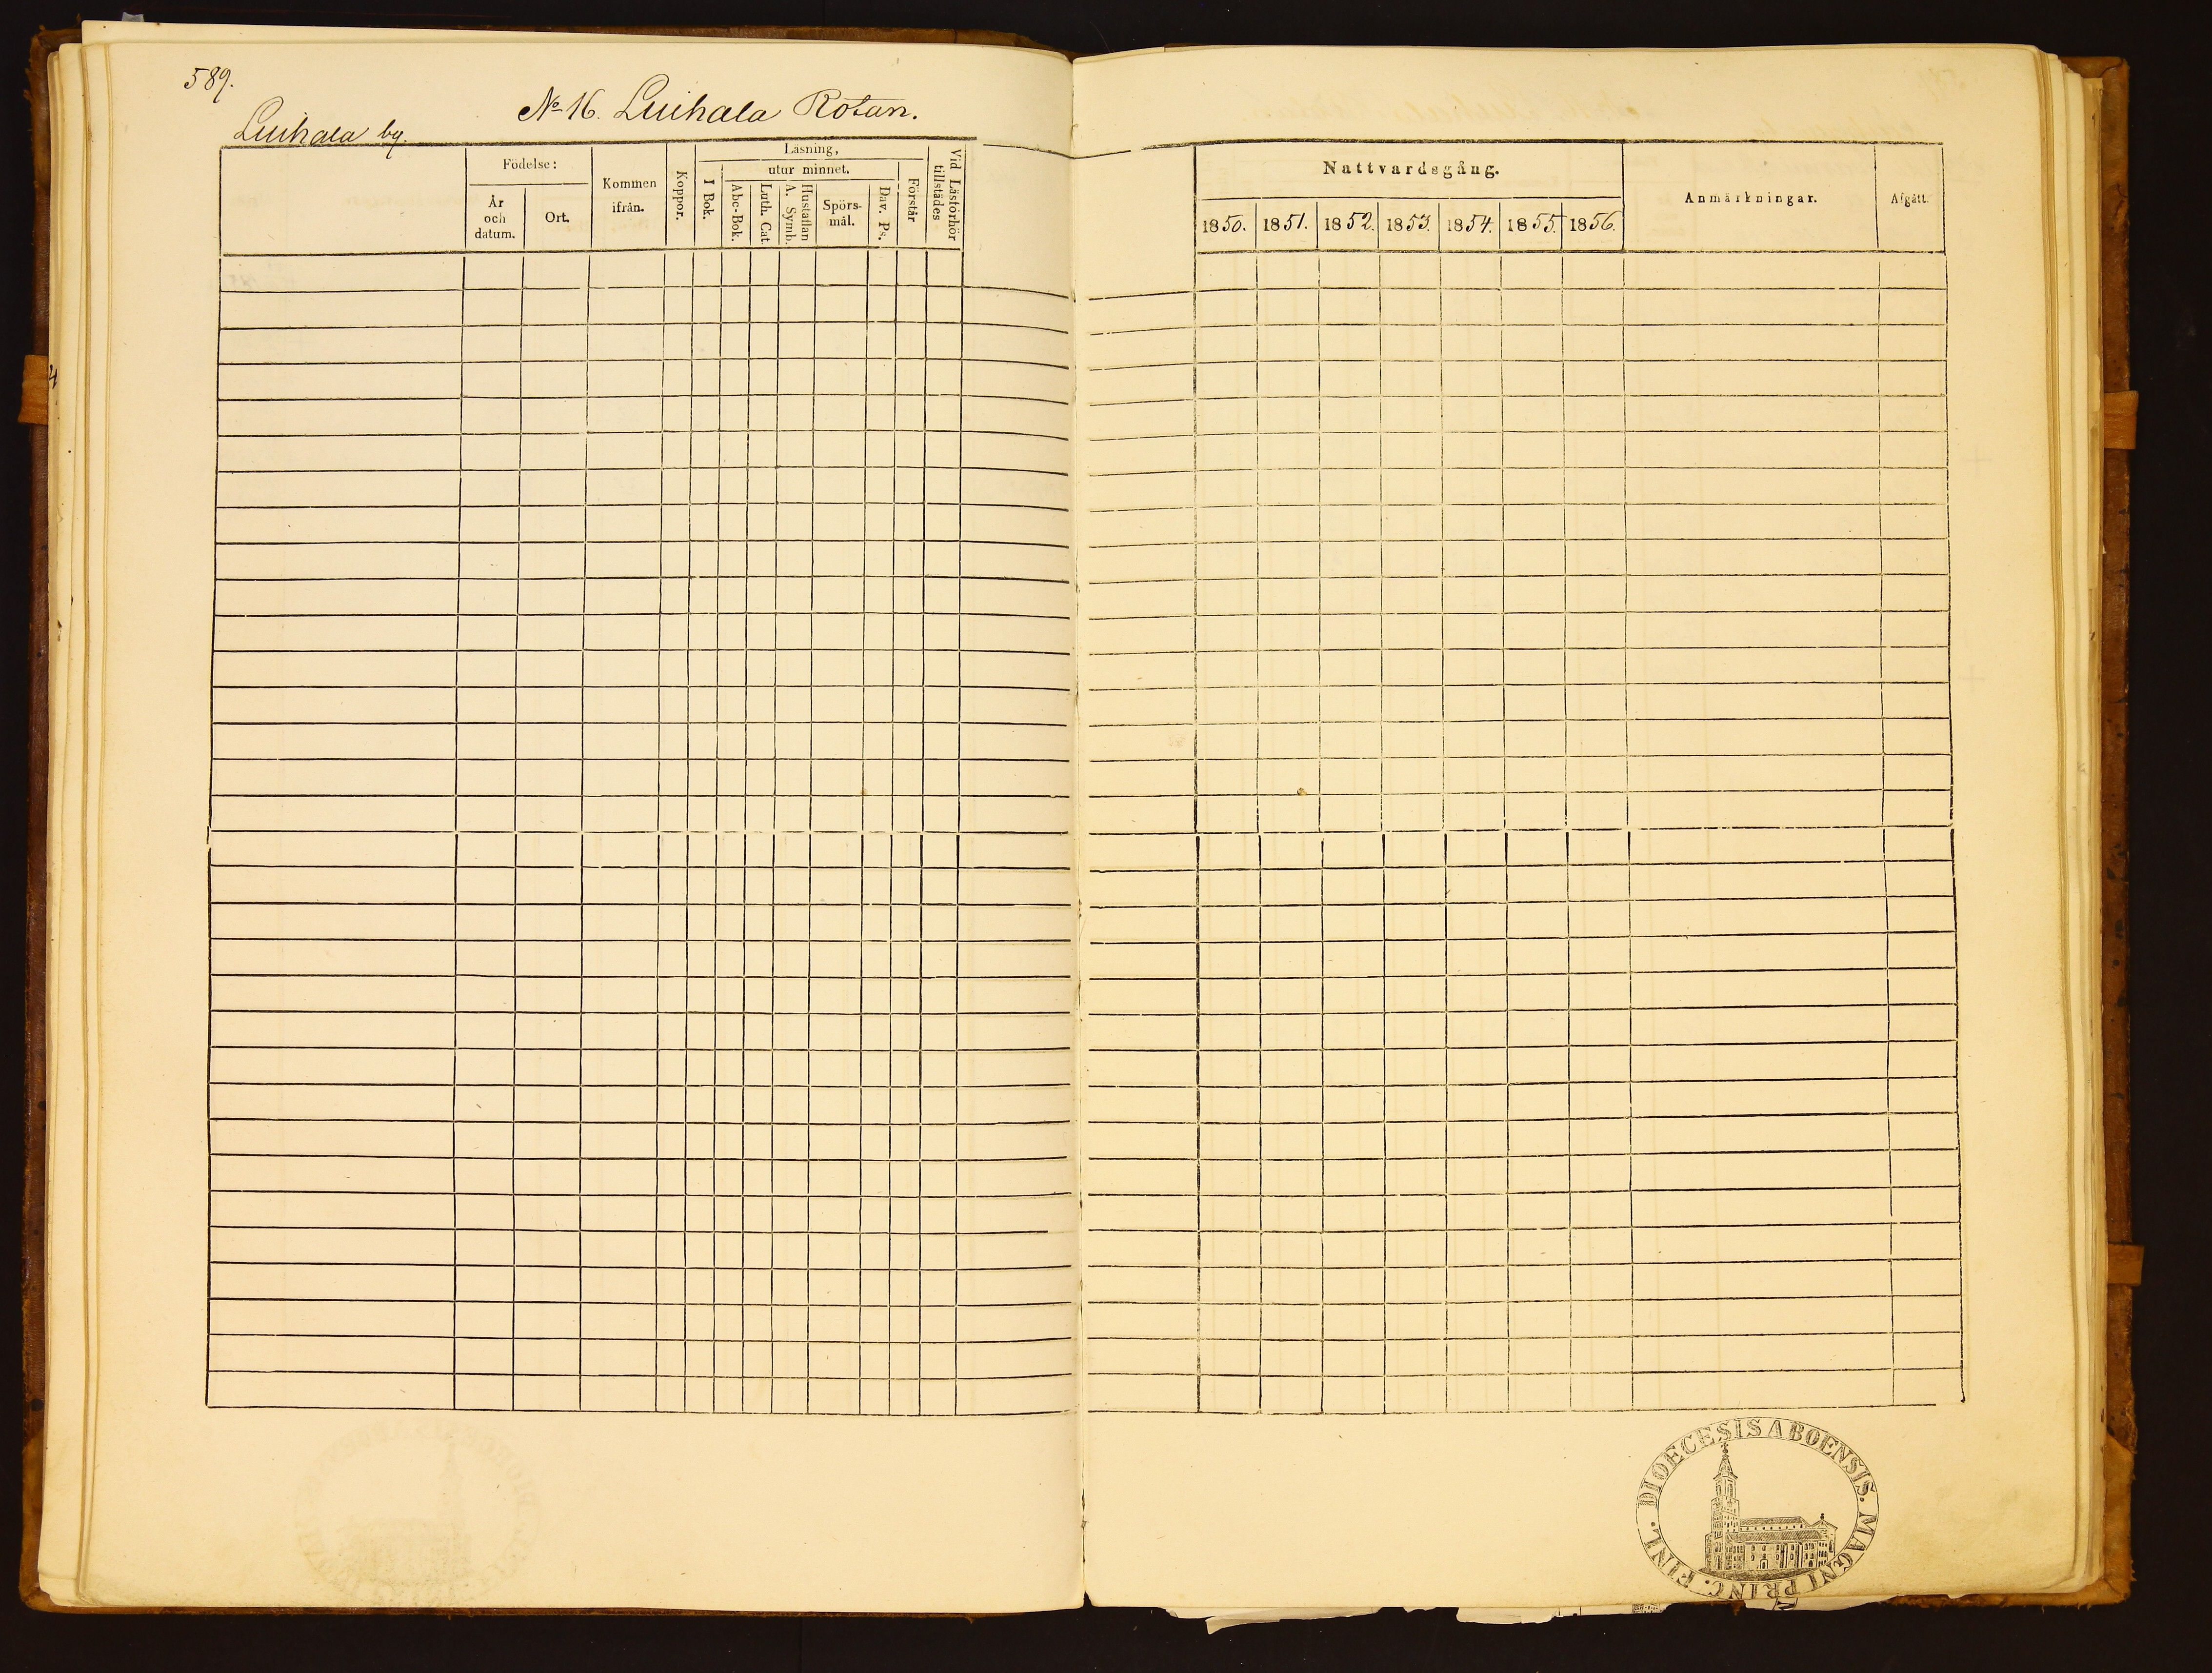 589.
No 16. Luihala Rotan.
Luihala by.
Födelse:
År
och
datum.
Ort.
Kommen
ifrån.
Koppor.
Läsning,
I Bok.
utur minnet.
Abc-Bok.
Luth. Cat.
Hustaflan
A. Symb.
Spörs-
mål.
Dav. Ps.
Förstår
Vid Läsförhör
tillstädes
Nattvardsgång.
1850. 1851. 1852. 1853. 1854. 1855. 1856.
Anmärkningar.
Afgått.
DIOECESIS ABOENSIS. MAGNI PRINC. FINL.